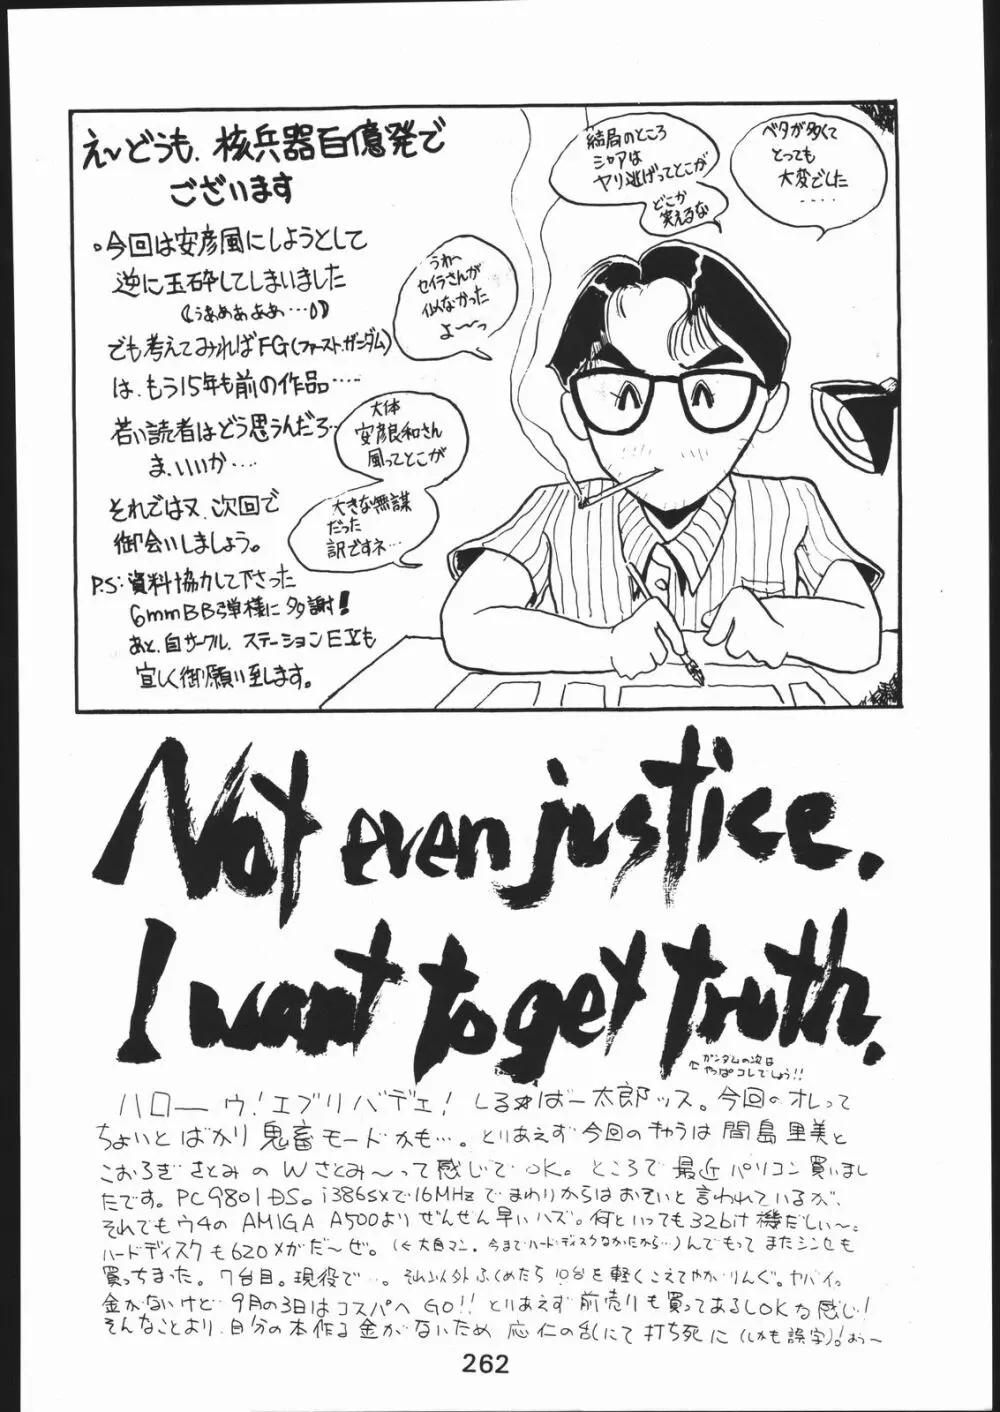 え~どうも、核兵器百億発で
ございます
。今回は安彦風にしようとして
逆に玉砕してしまいました
(うぁぁぁぁぁ…0)
でも考えてみればFG(ファースト.ガンダム)
は、もう15年も前の作品…‥
若い読者はどう思うんだろ…
ま、いいか…‥
それでは又、次回で
御会いしましょう。
P.S:資料協力して下さった
6mmBB弾様に多謝!
あと、自サークル、ステーションEXも
宜しく御願い致します。
ベタが多くて
とっても
大変でした
‥‥
結局のところ
シャアは
ヤリ逃げってとこが
どこか
笑えるな
うわ~
セイラさんが
似なかった
よ~っ
大体
安彦良和さん
風ってとこが
大きな無謀
だった
訳ですネ…
Not even justice.
I want to get truth.
↑ガンダムの次は
やっぱコレでしょう!!
ハローゥ!エブリバデェ!しるばー太郎ッス。今回のオレって
ちょいとばかり鬼畜モードかも…。とりあえず今回のキャラは間島里美と
こおろぎさとみのWさとみ~って感じでOK。ところで最近パソコン買いまし
たです。PC9801DS。i386SXで16MHzでまわりからはおそいと言われているが、
それでもウチのAMIGA A500よりぜんぜん早いハズ。何といっても32bit機だしぃ~。
ハードディスクも620メガだ~ぜ。(←大自マン。今までハードディスクなかったから…)んでもってまたシンセも
買っちまった。7台目。現役で…。それ以外ふくめたら10台を軽くこえてやがりんぐ。ヤバイっ
金がないけど9月の3日はコスパへGO!!とりあえず前売りも買ってあるしOKな感じ!
そんなことより、自分の本作る金がないため応仁の乱にて打ち死に(しかも誤字)!おぅ~
262